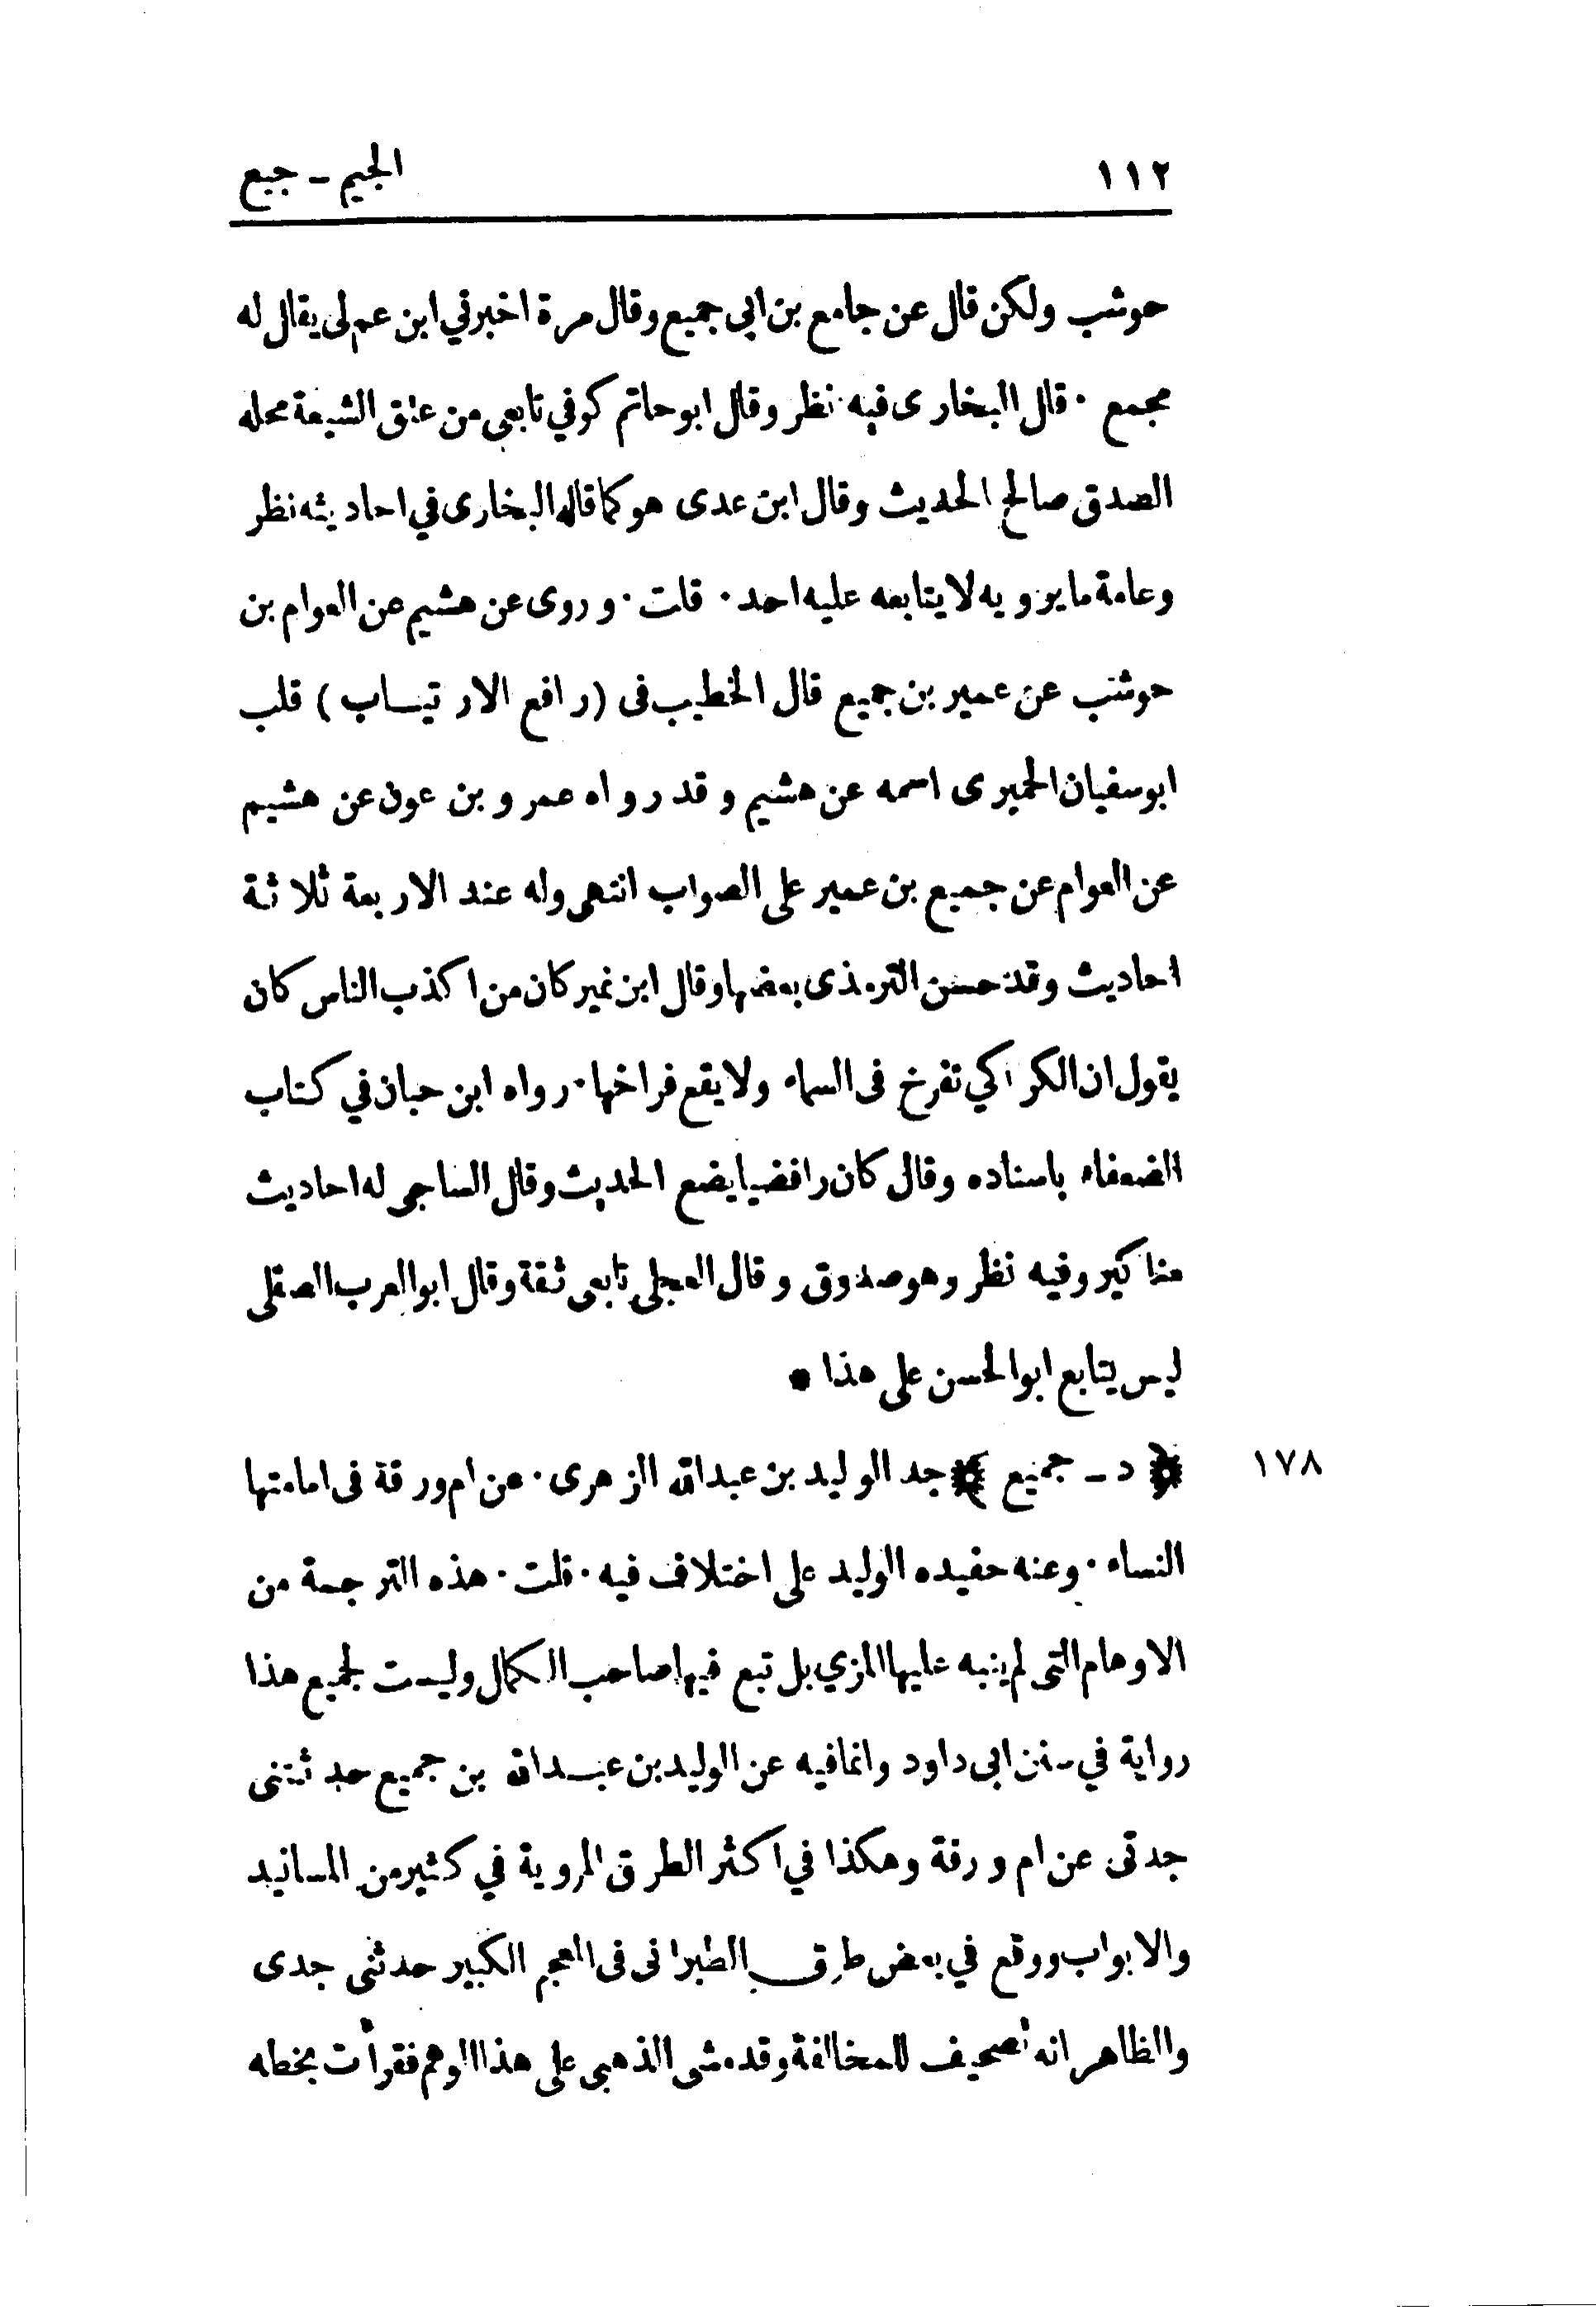 ١١٢
الجيم - جميع
حوشب ولكن قال عن جامع بن ابي جميع وقال مرة اخبرني ابن عم لى يقال له
مجمع · قال البخارى فيه نظر وقال ابو حاتم كوفي تابعي من عتق الشيعة محله
الصدق صالح الحديث وقال ابن عدى هو كما قاله البخارى في احاديثه نظر
وعامة ما يرويه لا يتابعه عليه احد · قلت · وروى عن هشيم عن العوام بن
حوشب عن عمير بن جميع قال الخطيب فى (رافع الارتيساب) قلب
ابو سفيان الحميرى اسمه عن هشيم وقد رواه عمرو بن عون عن هشيم
عن العوام عن جميع بن عمير على الصواب انتهى وله عند الاربعة ثلاثة
احاديث وقد حسن الترمذى بعضها وقال ابن نمير كان من اكذب الناس كان
يقول ان الكراكي تفرخ فى السماء ولا يقع فراخها · رواه ابن حبان في كتاب
الضعفاء باسناده وقال كان رافضيا يضع الحديث وقال الساجى له احاديث
مناكير وفيه نظر وهو صدوق وقال العجلى تابعى ثقة وقال ابو العرب الصقلى
ليس يتابع ابو الحسن على هذا *
١٧٨
﴿ د - جميع ﴾ جد الوليد بن عبدالله الزهرى · عن ام ورقة فى امامتها
النساء · وعنه حفيده الوليد على اختلاف فيه · قلت · هذه الترجمة من
الاوهام التى لم ينبه عليها المزي بل تبع فيها صاحب الكمال وليست لجميع هذا
رواية في سنن ابى داود وانما فيه عن الوليد بن عبدالله بن جميع حدثتنى
جدتى عن ام ورقة وهكذا في اكثر الطرق المروية في كثير من المسانيد
والابواب ووقع في بعض طرق الطبرانى فى المعجم الكبير حدثنى جدى
والظاهر انه تصحيف للمخالفة وقد مشى الذهبى على هذا الوهم فقرأت بخطه